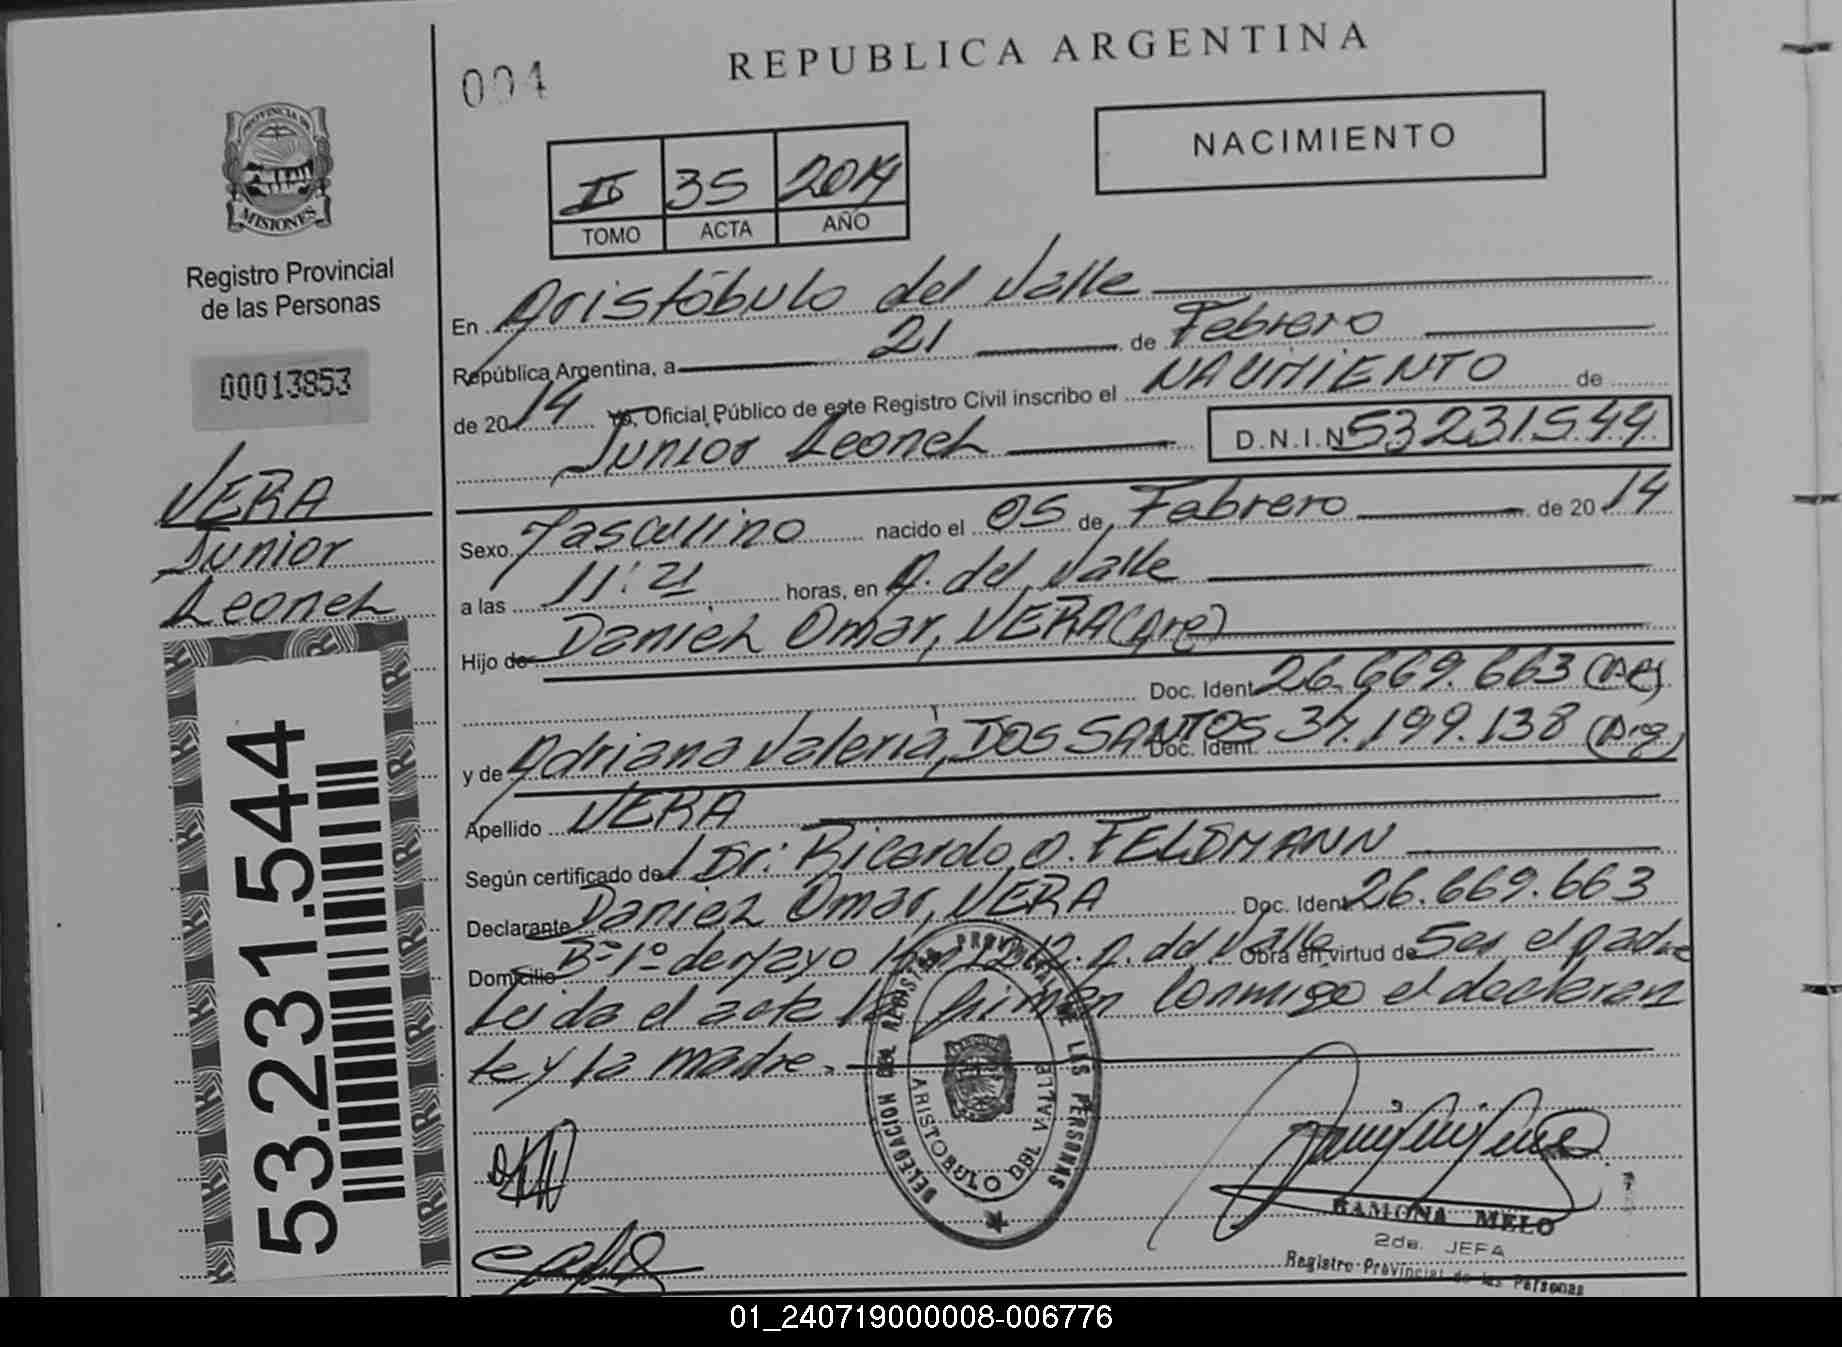 004
REPUBLICA ARGENTINA
NACIMIENTO
PROVINCIA DE
MISIONES
Registro Provincial
de las Personas
00013853
II 35 2014
TOMO ACTA AÑO
En Aristóbulo del Valle
República Argentina, a 21 de Febrero
de 2014 yo, Oficial Público de este Registro Civil inscribo el NACIMIENTO de
Junior Leonel D.N.I.N 53231544
VERA
Junior
Leonel
53.231.544
Sexo Masculino nacido el 05 de Febrero de 2014
a las 11:21 horas, en A. del Valle
Hijo de Daniel Omar, VERA (Arg)
Doc. Ident 26.669.663 (Arg)
y de Adriana Valeria, DOS SANTOS Doc. Ident. 34.199.138 (Arg)
Apellido VERA
Según certificado de Dr: Ricardo O. FELDMANN
Declarante Daniel Omar, VERA Doc. Ident 26.669.663
Domicilio Bº 1º de Mayo A. del Valle Obra en virtud de Ser el padre
Leida el acta la firman conmigo el declaran
te y la madre.
DELEGACION DEL REGISTRO PROVINCIAL DE LAS PERSONAS
ARISTOBULO DEL VALLE
RAMONA MELO
2da. JEFA
Registro Provincial de las Personas
01_240719000008-006776